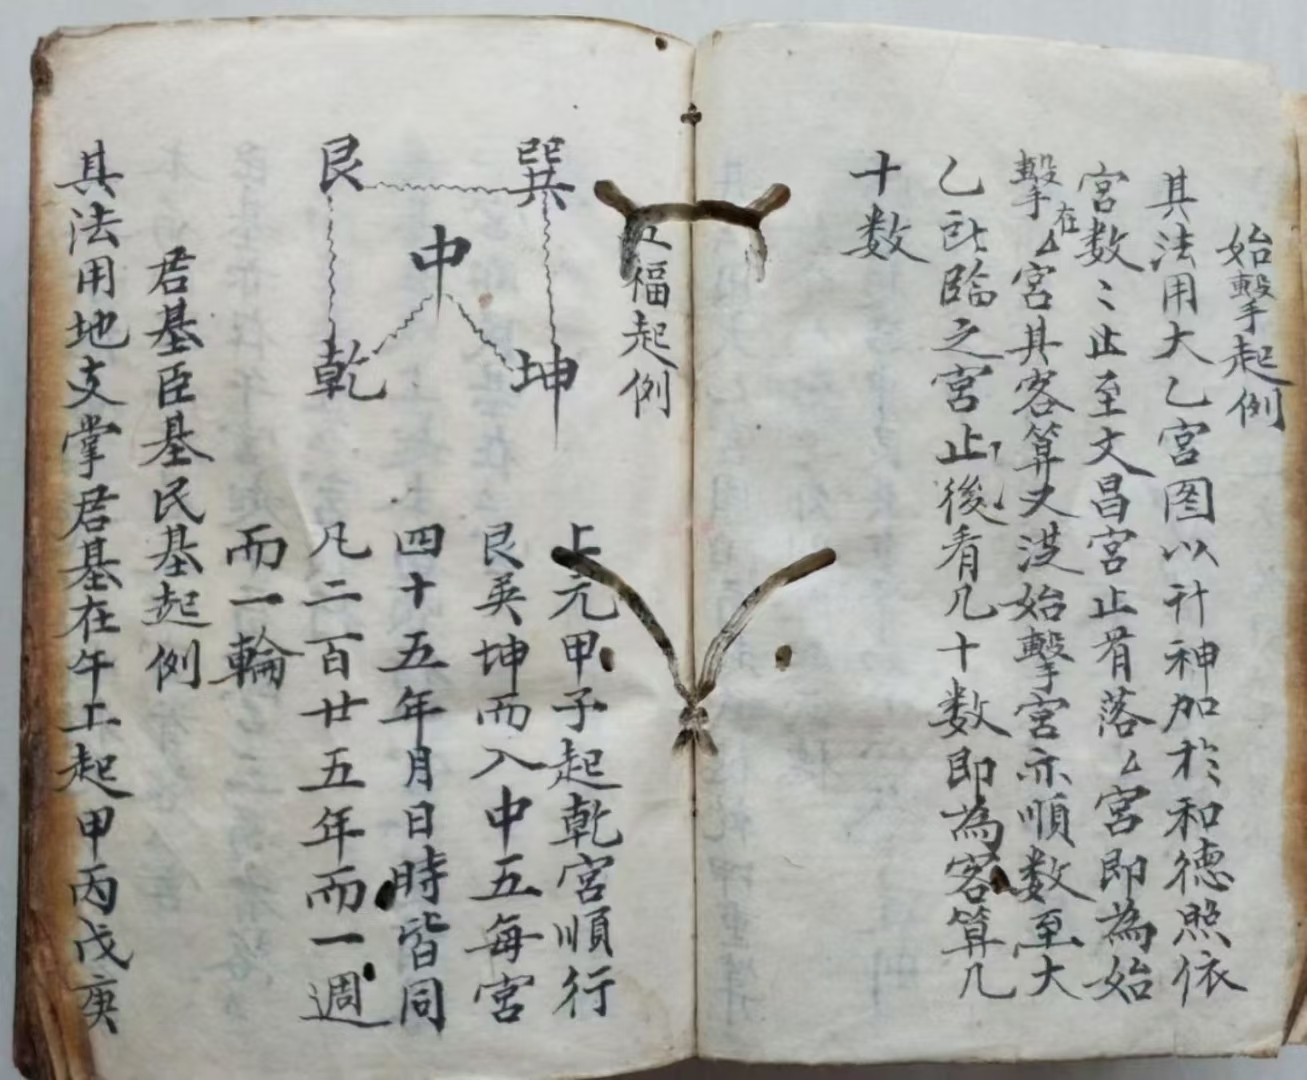 始擊起例
其法用大乙宮图以計神加於和德照依
宮数〻止至文昌宮止看落厶宮即為始
擊在厶宮其客算又從始擊宮亦順数至大
乙所臨之宮止後看几十数即為客算几
十数
五福起例
巽
艮
中
坤
乾
上元甲子起乾宮順行
艮巽坤而入中五每宮
四十五年月日時皆同
凡二百廿五年而一週
而一輪
君基臣基民基起例
其法用地支掌君基在午上起甲丙戊庚